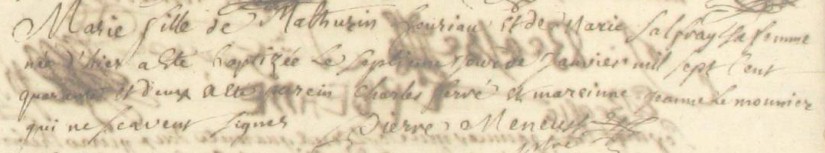 Marie fille de Mathurin houriau et de Marie Salpray sa femme
née d'hier a este baptizée le septieme jour de Janvier mil sept cent
quarante et deux a este parein Charles hervé et mareinne Jeanne le mounier
qui ne scavent signer Pierre Meneust